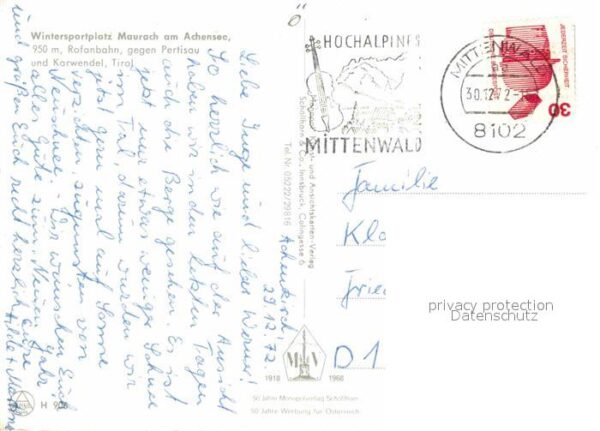 Wintersportplatz Maurach am Achensee,
950 m, Rofanbahn, gegen Pertisau
und Karwendel, Tirol
Achenkirch
29.12.72
Liebe Inge und lieber Werner!
So herrlich wie auf der Ansicht
haben wir in den letzten Tagen
auch die Berge gesehen. Es ist
jetzt nur etwas weniger Schnee
im Tal, darum würden wir
jetzt gern auf Sonne
verzichten, zugunsten von
Neuschnee. Wir wünschen Euch
alles Gute zum Neuen Jahr
und grüßen Euch recht herzlich Eure
Hilde +
HOCHALPINES
MITTENWALD
MITTENWALD
30.12.72
8102
JEDERZEIT SICHERHEIT
30
Familie
Klo
Frie
D 1
privacy protection
Datenschutz
und Ansichtskarten-Verlag
Schöllhorn & Co., Innsbruck, Colingasse 6
Tel. Nr. 05222/29816
M V
1918 1968
50 Jahre Monopolverlag Schöllhorn
50 Jahre Werbung für Österreich
H 908